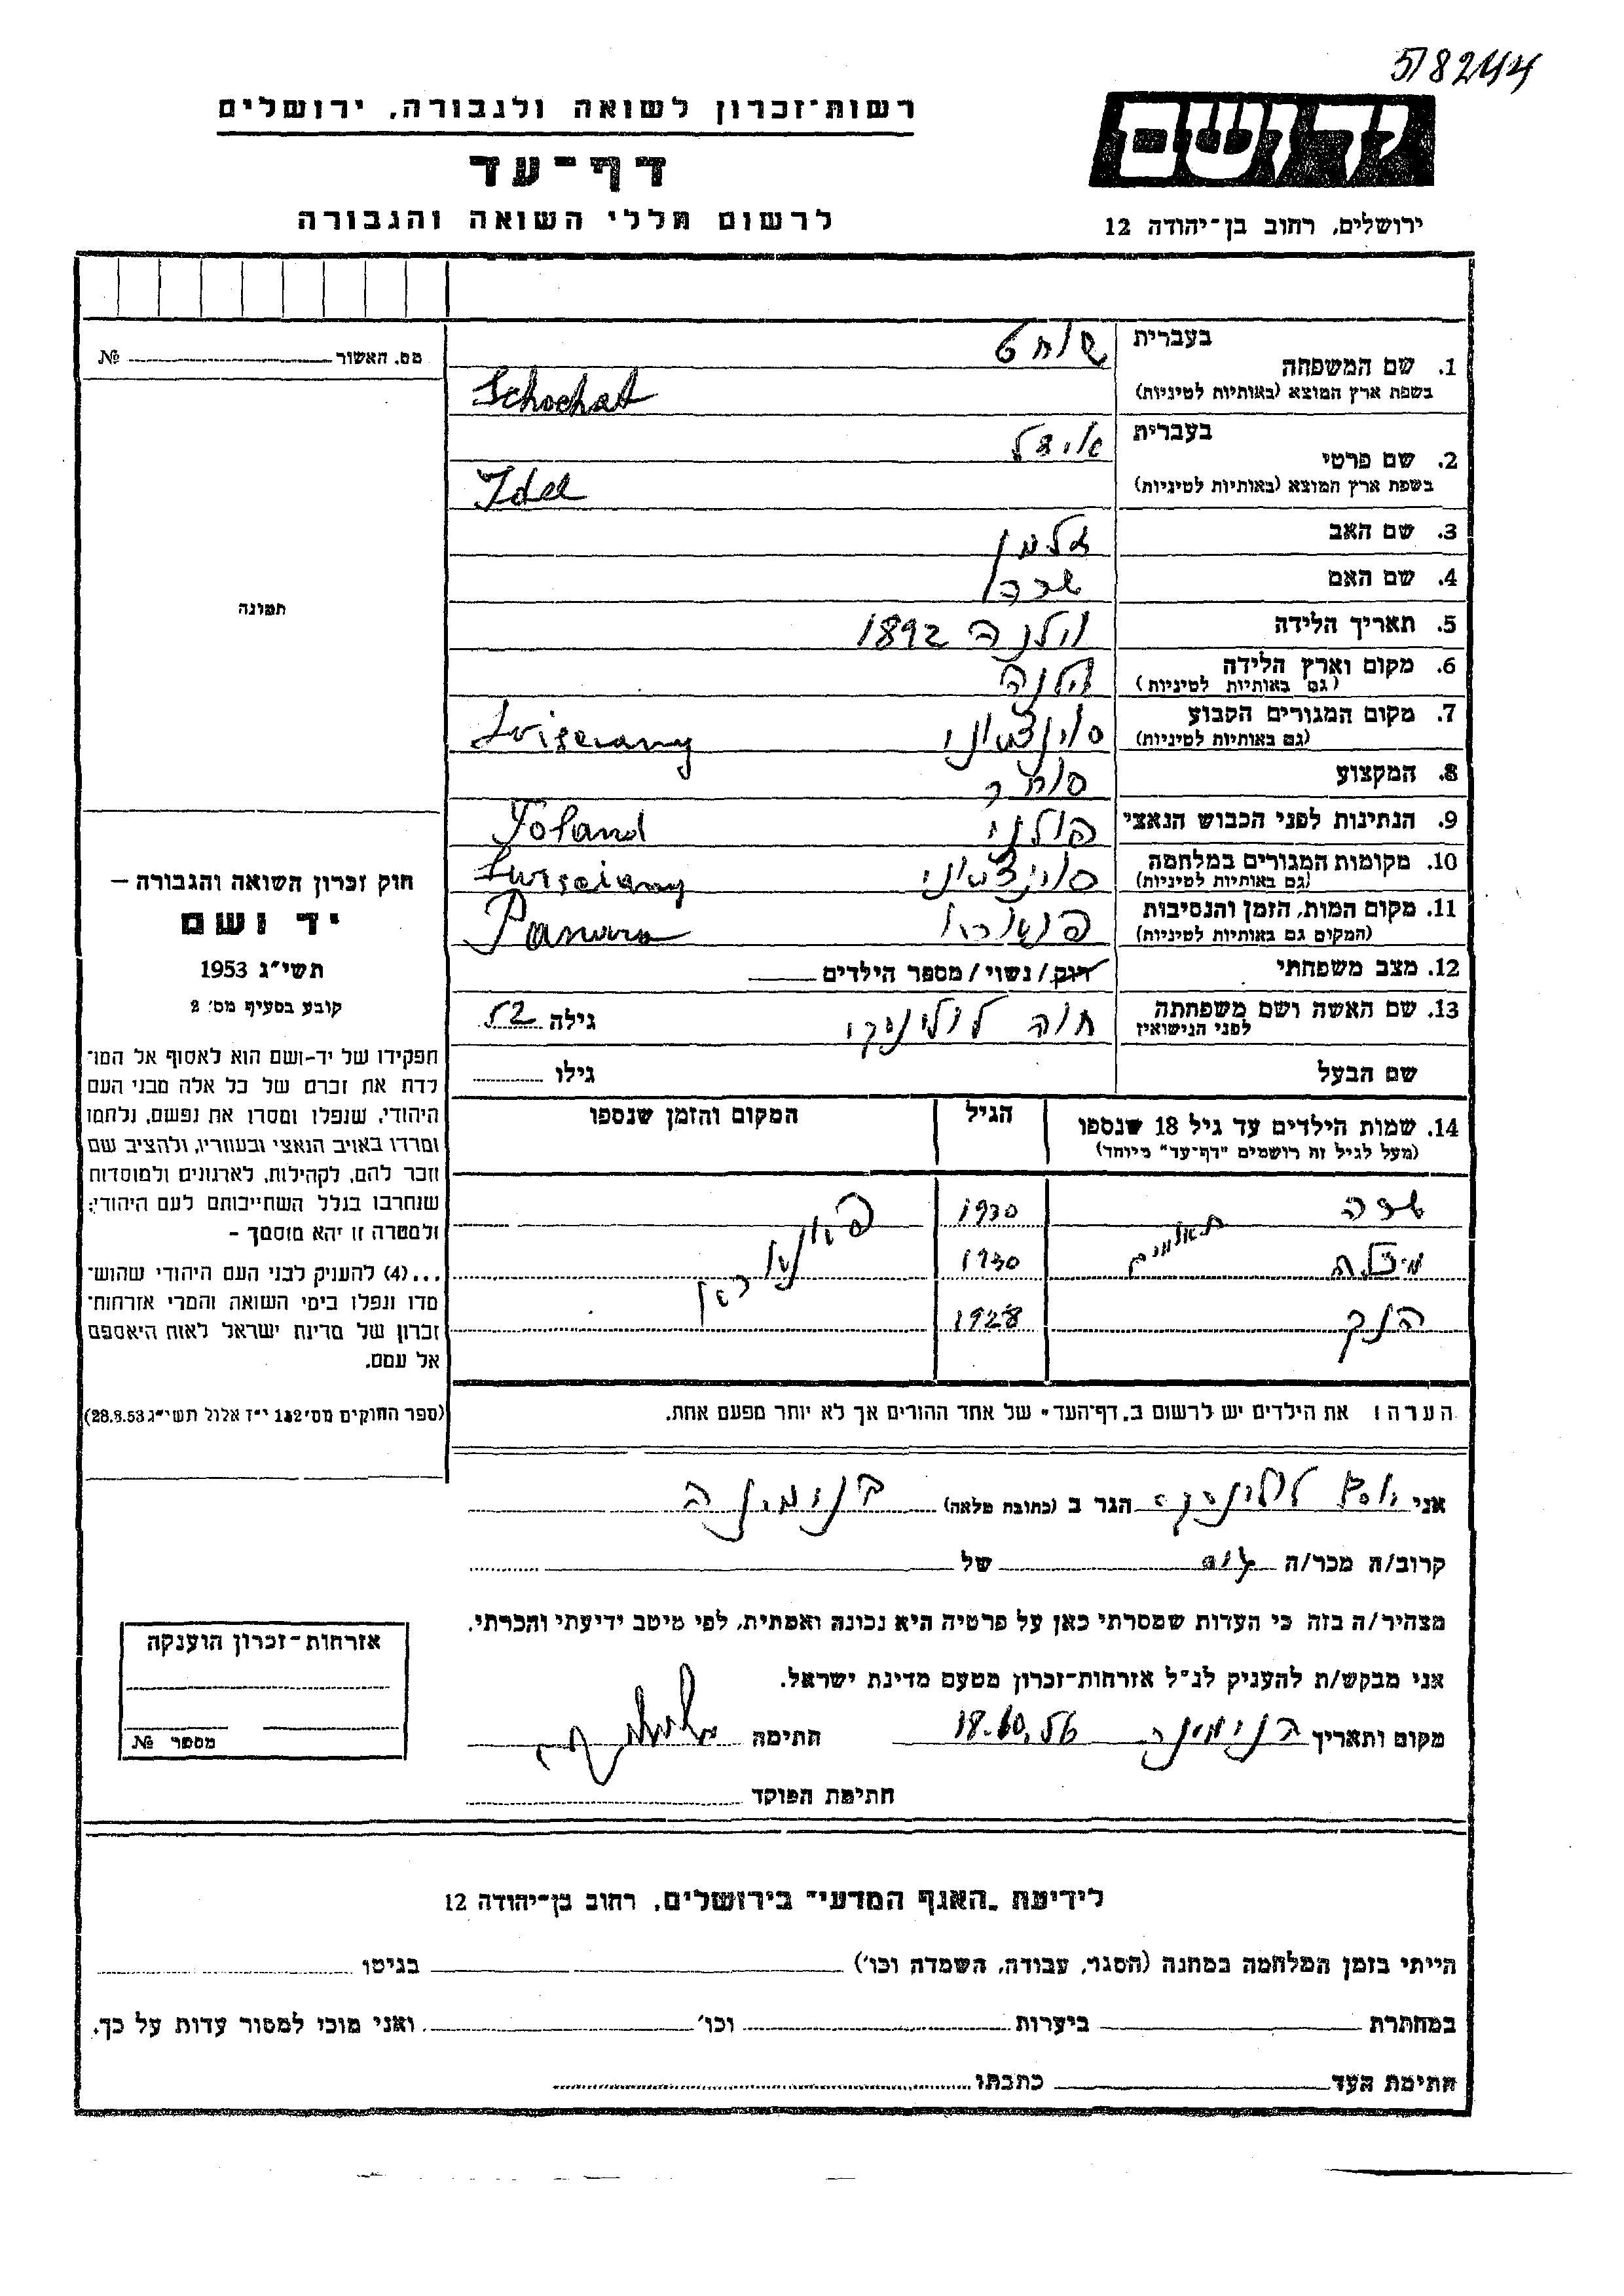 578244
רשות־זכרון לשואה ולגבורה, ירושלים
דף־עד
לרשום חללי השואה והגבורה
ידושם
ירושלים, רחוב בן־יהודה 12
מס. האשור № 
תמונה
1. שם המשפחה
בעברית שוחט
בשפת ארץ המוצא (באותיות לטיניות) Schochat
2. שם פרטי
בעברית אידל
בשפת ארץ המוצא (באותיות לטיניות) Idel
3. שם האב זלמן
4. שם האם
5. תאריך הלידה וילנה 1892
6. מקום וארץ הלידה וילנה
(גם באותיות לטיניות)
7. מקום המגורים הקבוע
(גם באותיות לטיניות)
8. המקצוע סוחר
9. הנתינות לפני הכבוש הנאצי פולני Poland
10. מקומות המגורים במלחמה
(גם באותיות לטיניות)
11. מקום המות, הזמן והנסיבות
(המקום גם באותיות לטיניות)
12. מצב משפחתי רווק/נשוי/מספר הילדים
13. שם האשה ושם משפחתה חוה גילה 52
לפני הנישואין
שם הבעל גילו
14. שמות הילדים עד גיל 18 שנספו הגיל המקום והזמן שנספו
(מעל לגיל זה רושמים "דף־עד" מיוחד)
שרה 1930
תאומים
1930
1928
הערה: את הילדים יש לרשום ב„דף־העד" של אחד ההורים אך לא יותר מפעם אחת.
חוק זכרון השואה והגבורה –
יד ושם
תשי״ג 1953
קובע בסעיף מס׳ 2
תפקידו של יד-ושם הוא לאסוף אל המו־
לדת את זכרם של כל אלה מבני העם
היהודי, שנפלו ומסרו את נפשם, נלחמו
ומרדו באויב הנאצי ובעוזריו, ולהציב שם
וזכר להם, לקהילות, לארגונים ולמוסדות
שנחרבו בגלל השתייכותם לעם היהודי;
ולמטרה זו יהא מוסמך –
...(4) להעניק לבני העם היהודי שהוש־
מדו ונפלו בימי השואה והמרי אזרחות־
זכרון של מדינת ישראל לאות היאספם
אל עמם.
(ספר החוקים מס׳ 132 י״ז אלול תשי״ג 28.8.53)
אני יוסף הגר ב (כתובת מלאה) בנימינה
קרוב/ה מכר/ה גיס של
מצהיר/ה בזה כי העדות שמסרתי כאן על פרטיה היא נכונה ואמתית, לפי מיטב ידיעתי והכרתי.
אני מבקש/ת להעניק לנ״ל אזרחות־זכרון מטעם מדינת ישראל.
מקום ותאריך בנימינה 18.10.56 חתימה
חתימת הפוקד
אזרחות־זכרון הוענקה
מספר №
לידיעת „האגף המדעי" בירושלים, רחוב בן־יהודה 12
הייתי בזמן המלחמה במחנה (הסגר, עבודה, השמדה וכו׳) בגיטו
במחתרת ביערות וכו׳ ואני מוכן למסור עדות על כך.
חתימת העד כתבתו